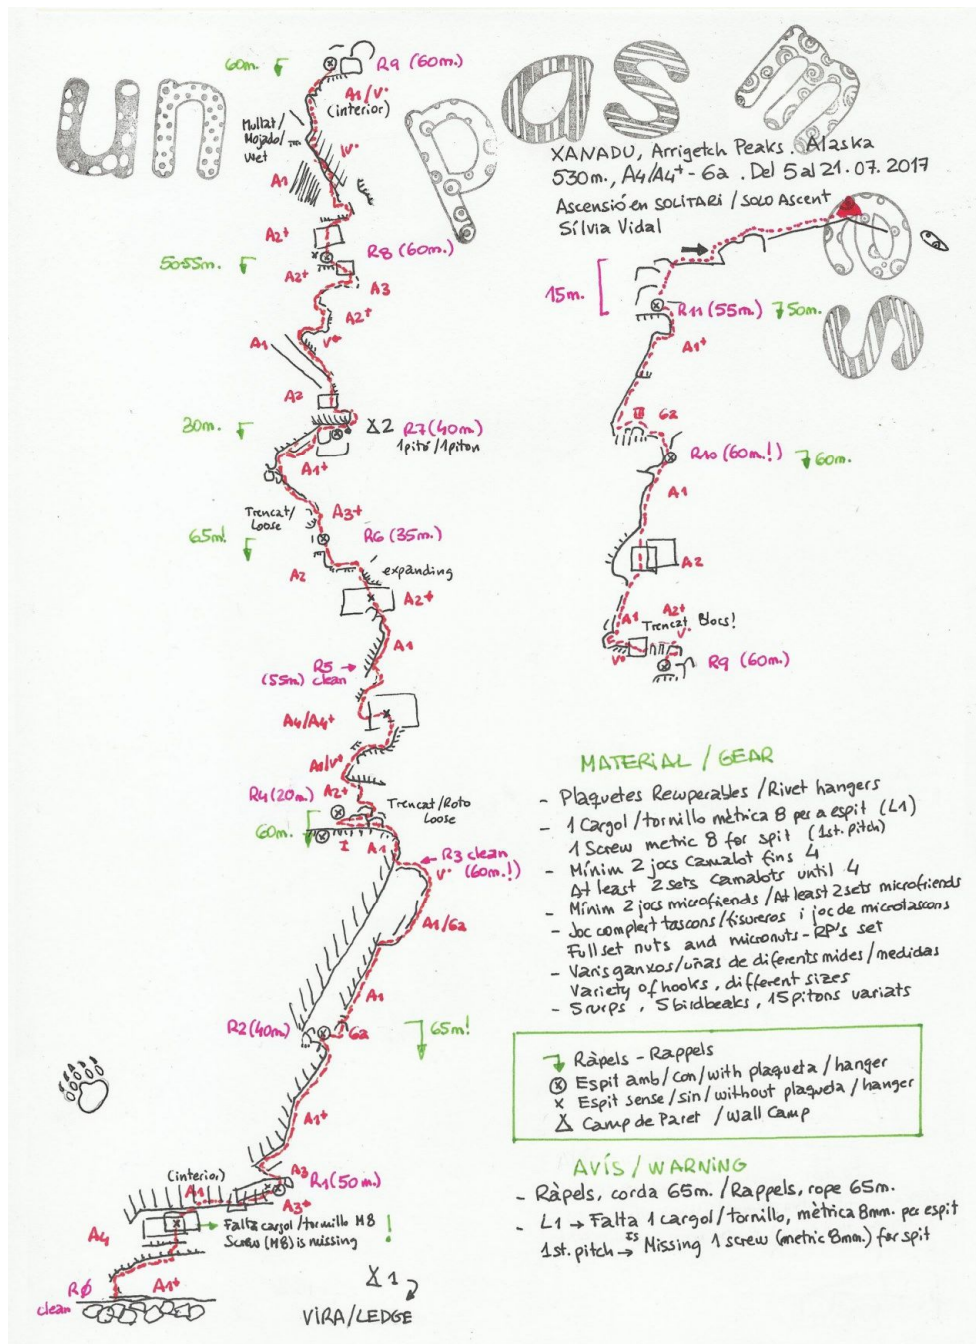 un pas més
XANADU, Arrigetch Peaks. Alaska
530m., A4/A4+ - 6a. Del 5 al 21.07.2017
Ascensió en SOLITARI / SOLO Ascent
Sílvia Vidal
60m.
R9 (60m.)
A1/V°
(interior)
Mullat/
Mojado/
Wet
IV°
A1
A2+
R8 (60m.)
50-55m.
A2+
A3
A2+
V°
A1
A2
30m.
2
R7 (40m.)
1 pitó/1 piton
A1+
Trencat/
Loose
A3+
65m!
R6 (35m.)
A2
expanding
A2+
A1
R5
(55m) clean
A4/A4+
A1/V°
A2+
R4 (20m.)
Trencat/Roto
Loose
60m.
I
A1
R3 clean
(60m.!)
V°
A1/6a
A1
R2 (40m)
6a
65m!
A1+
A3
(interior)
A1
R1 (50m.)
A3+
A4
Falta cargol/tornillo M8
Screw (M8) is missing
!
RØ
clean
A1+
1
VIRA/LEDGE
15m.
R11 (55m.)
50m.
A1+
III
6a
R10 (60m.!)
60m.
A1
A2
A1
A2+
Trencat Blocs!
V°
V°
R9 (60m.)
MATERIAL / GEAR
- Plaquetes Recuperables / Rivet hangers
- 1 Cargol / tornillo mètrica 8 per a espit (L1)
1 Screw metric 8 for spit (1st. pitch)
- Mínim 2 jocs Camalot fins 4
At least 2 sets Camalots until 4
- Mínim 2 jocs microfriends / At least 2 sets microfriends
- Joc complert tascons/fisureros i joc de microtascons
Full set nuts and micronuts - RP's set
- Varis ganxos/uñas de diferents mides/medidas
Variety of hooks, different sizes
- 5 rurps, 5 birdbeaks, 15 pitons variats
Ràpels - Rappels
Espit amb/con/with plaqueta/hanger
x Espit sense/sin/without plaqueta/hanger
Camp de Paret / Wall Camp
AVÍS / WARNING
- Ràpels, corda 65m. / Rappels, rope 65m.
- L1 → Falta 1 cargol/tornillo, mètrica 8mm. per espit
1st. pitch → Is Missing 1 screw (metric 8mm.) for spit